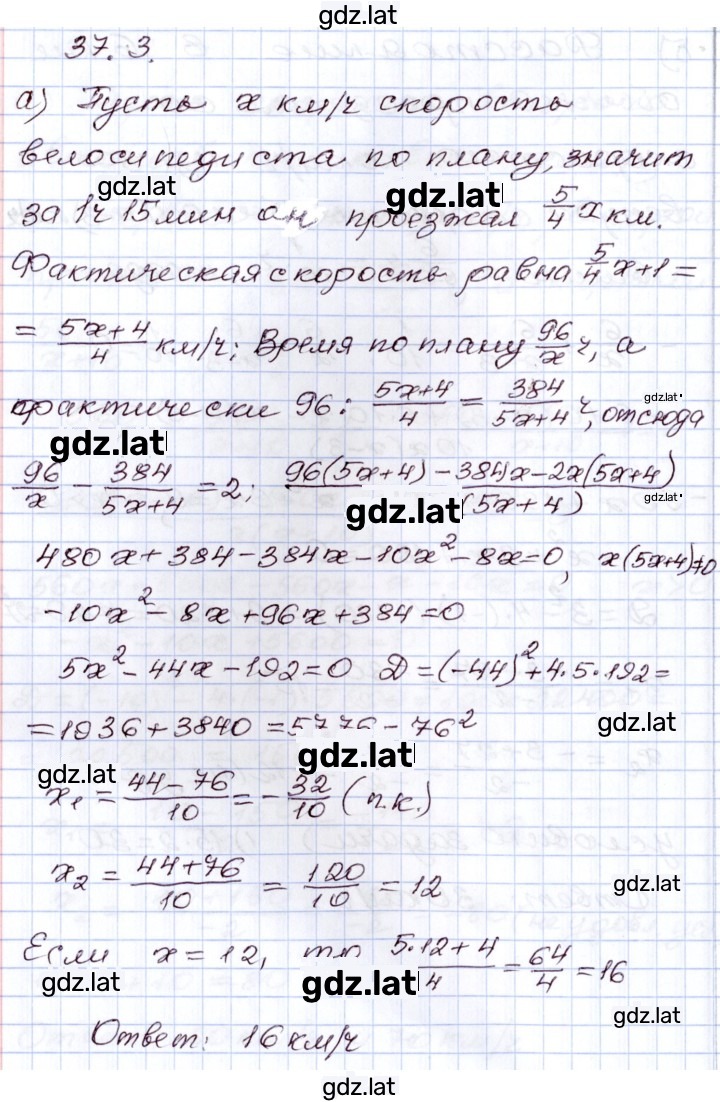 gdz.lat
37.3.
а) Пусть x км/ч скорость
велосипедиста по плану, значит
gdz.lat gdz.lat
за 1ч 15мин он проезжал 5/4 x км.
Фактическая скорость равна 5/4 x+1 =
= (5x+4)/4 км/ч; Время по плану 96/x ч, а
практически 96 : (5x+4)/4 = 384/(5x+4) ч, отсюда
gdz.lat
gdz.lat
96/x - 384/(5x+4) = 2; (96(5x+4) - 384x - 2x(5x+4))/(5x+4)
gdz.lat gdz.lat
480x + 384 - 384x - 10x² - 8x = 0, x(5x+4)≠0
-10x² - 8x + 96x + 384 = 0
5x² - 44x - 192 = 0 D = (-44)² + 4·5·192 =
= 1936 + 3840 = 5776 = 76²
gdz.lat
gdz.lat gdz.lat
x₁ = (44-76)/10 = -32/10 (п.к.)
x₂ = (44+76)/10 = 120/10 = 12
gdz.lat
Если x = 12, то (5·12+4)/4 = 64/4 = 16
gdz.lat gdz.lat
gdz.lat
Ответ: 16 км/ч
gdz.lat